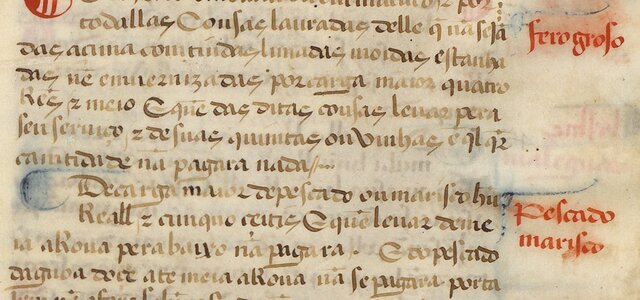 todallas Cousas lauradas delle q̃ na seja
das acima contindas limadas moidas estanha
das nē enuernizadas por carga maior quatro
Reē̃s z meio E quē das ditas cousas leuar pera
seu seruiço z de suas quintas ou vinhas ē q̃l q̃r
cantidade nã pagara nada
De carga maior de pescado ou marisco hũ
Reall z cinquo ceitis E quē leuar de me
ia aRoua pera baixo nã pagara . E do pescado
dagoa doce ate meia aRoua nã se pagara porta
fero groso
Pescado
marisco